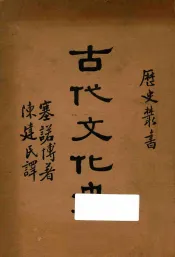 歷史叢書
古代文化史
塞諾博著
陳建民譯